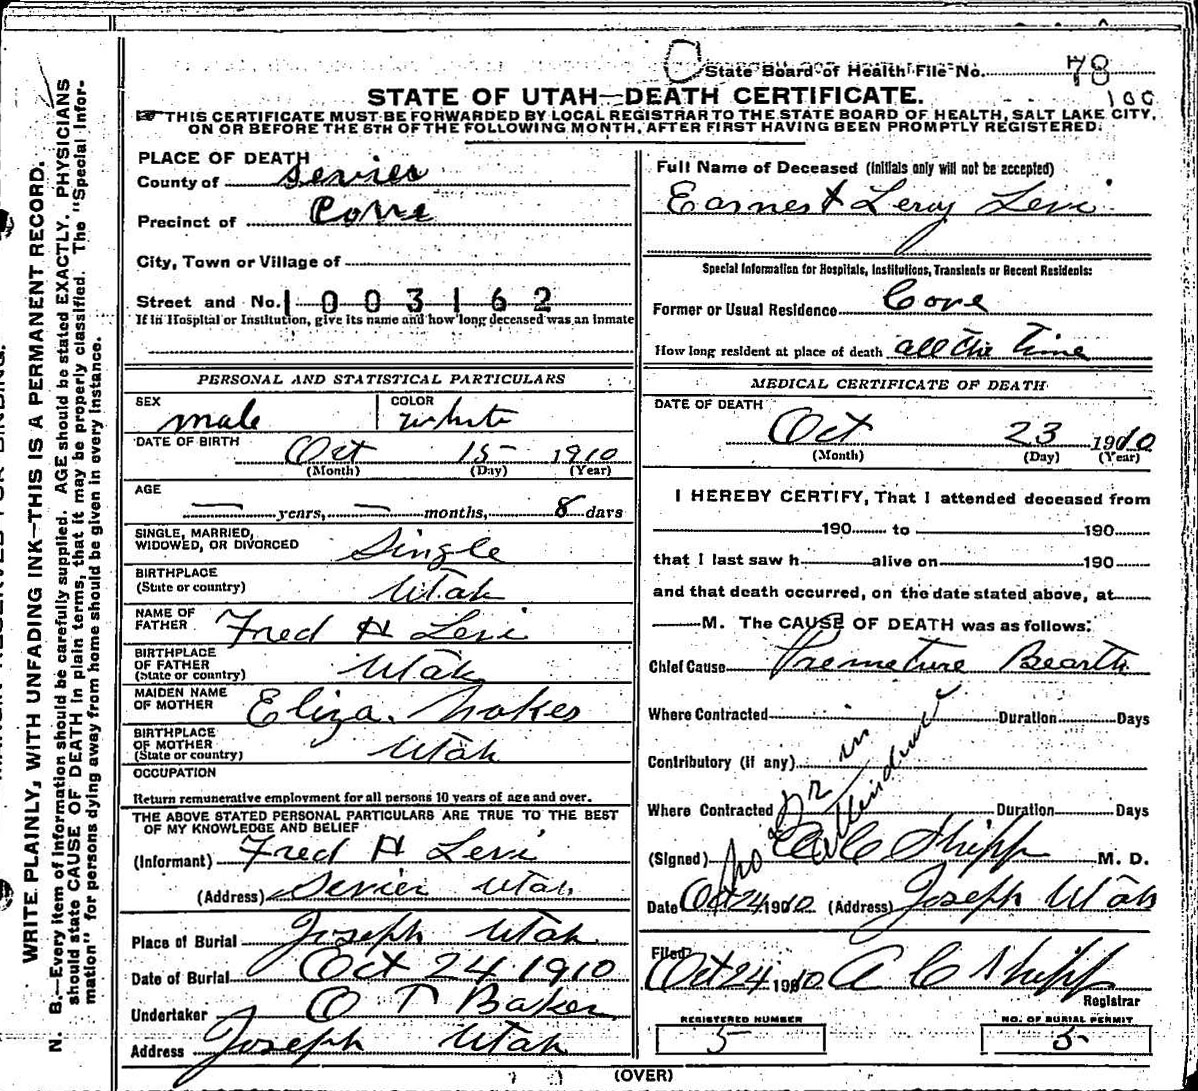 State Board of Health File No. 78
100
STATE OF UTAH—DEATH CERTIFICATE.
THIS CERTIFICATE MUST BE FORWARDED BY LOCAL REGISTRAR TO THE STATE BOARD OF HEALTH, SALT LAKE CITY,
ON OR BEFORE THE 5TH OF THE FOLLOWING MONTH, AFTER FIRST HAVING BEEN PROMPTLY REGISTERED.
WRITE PLAINLY, WITH UNFADING INK—THIS IS A PERMANENT RECORD.
N. B.—Every item of information should be carefully supplied. AGE should be stated EXACTLY. PHYSICIANS
should state CAUSE OF DEATH in plain terms, that it may be properly classified. The "Special Infor-
mation" for persons dying away from home should be given in every instance.
PLACE OF DEATH
County of Sevier
Precinct of Cove
City, Town or Village of
Street and No. 1003162
If in Hospital or Institution, give its name and how long deceased was an inmate
PERSONAL AND STATISTICAL PARTICULARS
SEX male COLOR white
DATE OF BIRTH Oct 15 1910
(Month) (Day) (Year)
AGE
— years, — months, 8 days
SINGLE, MARRIED,
WIDOWED, OR DIVORCED Single
BIRTHPLACE
(State or country) Utah
NAME OF
FATHER Fred H Levi
BIRTHPLACE
OF FATHER
(State or country) Utah
MAIDEN NAME
OF MOTHER Eliza
BIRTHPLACE
OF MOTHER
(State or country) Utah
OCCUPATION
Return remunerative employment for all persons 10 years of age and over.
THE ABOVE STATED PERSONAL PARTICULARS ARE TRUE TO THE BEST
OF MY KNOWLEDGE AND BELIEF
(Informant) Fred H Levi
(Address) Sevier Utah
Place of Burial Joseph Utah
Date of Burial Oct 24 1910
Undertaker O T Baker
Address Joseph Utah
Full Name of Deceased (Initials only will not be accepted)
Earnest Leroy Levi
Special Information for Hospitals, Institutions, Transients or Recent Residents:
Former or Usual Residence Cove
How long resident at place of death all the time
MEDICAL CERTIFICATE OF DEATH
DATE OF DEATH
Oct 23 1910
(Month) (Day) (Year)
I HEREBY CERTIFY, That I attended deceased from
190 to 190
that I last saw h alive on 190
and that death occurred, on the date stated above, at
M. The CAUSE OF DEATH was as follows:
Chief Cause Premeture Bearth
Where Contracted Duration Days
Contributory (if any)
Where Contracted Duration Days
no Dr in
Attendence
(Signed) A C Shipp M. D.
Date Oct 24 1910 (Address) Joseph Utah
Filed
Oct 24 1910 A C Shipp
Registrar
REGISTERED NUMBER NO. OF BURIAL PERMIT
5 5
(OVER)